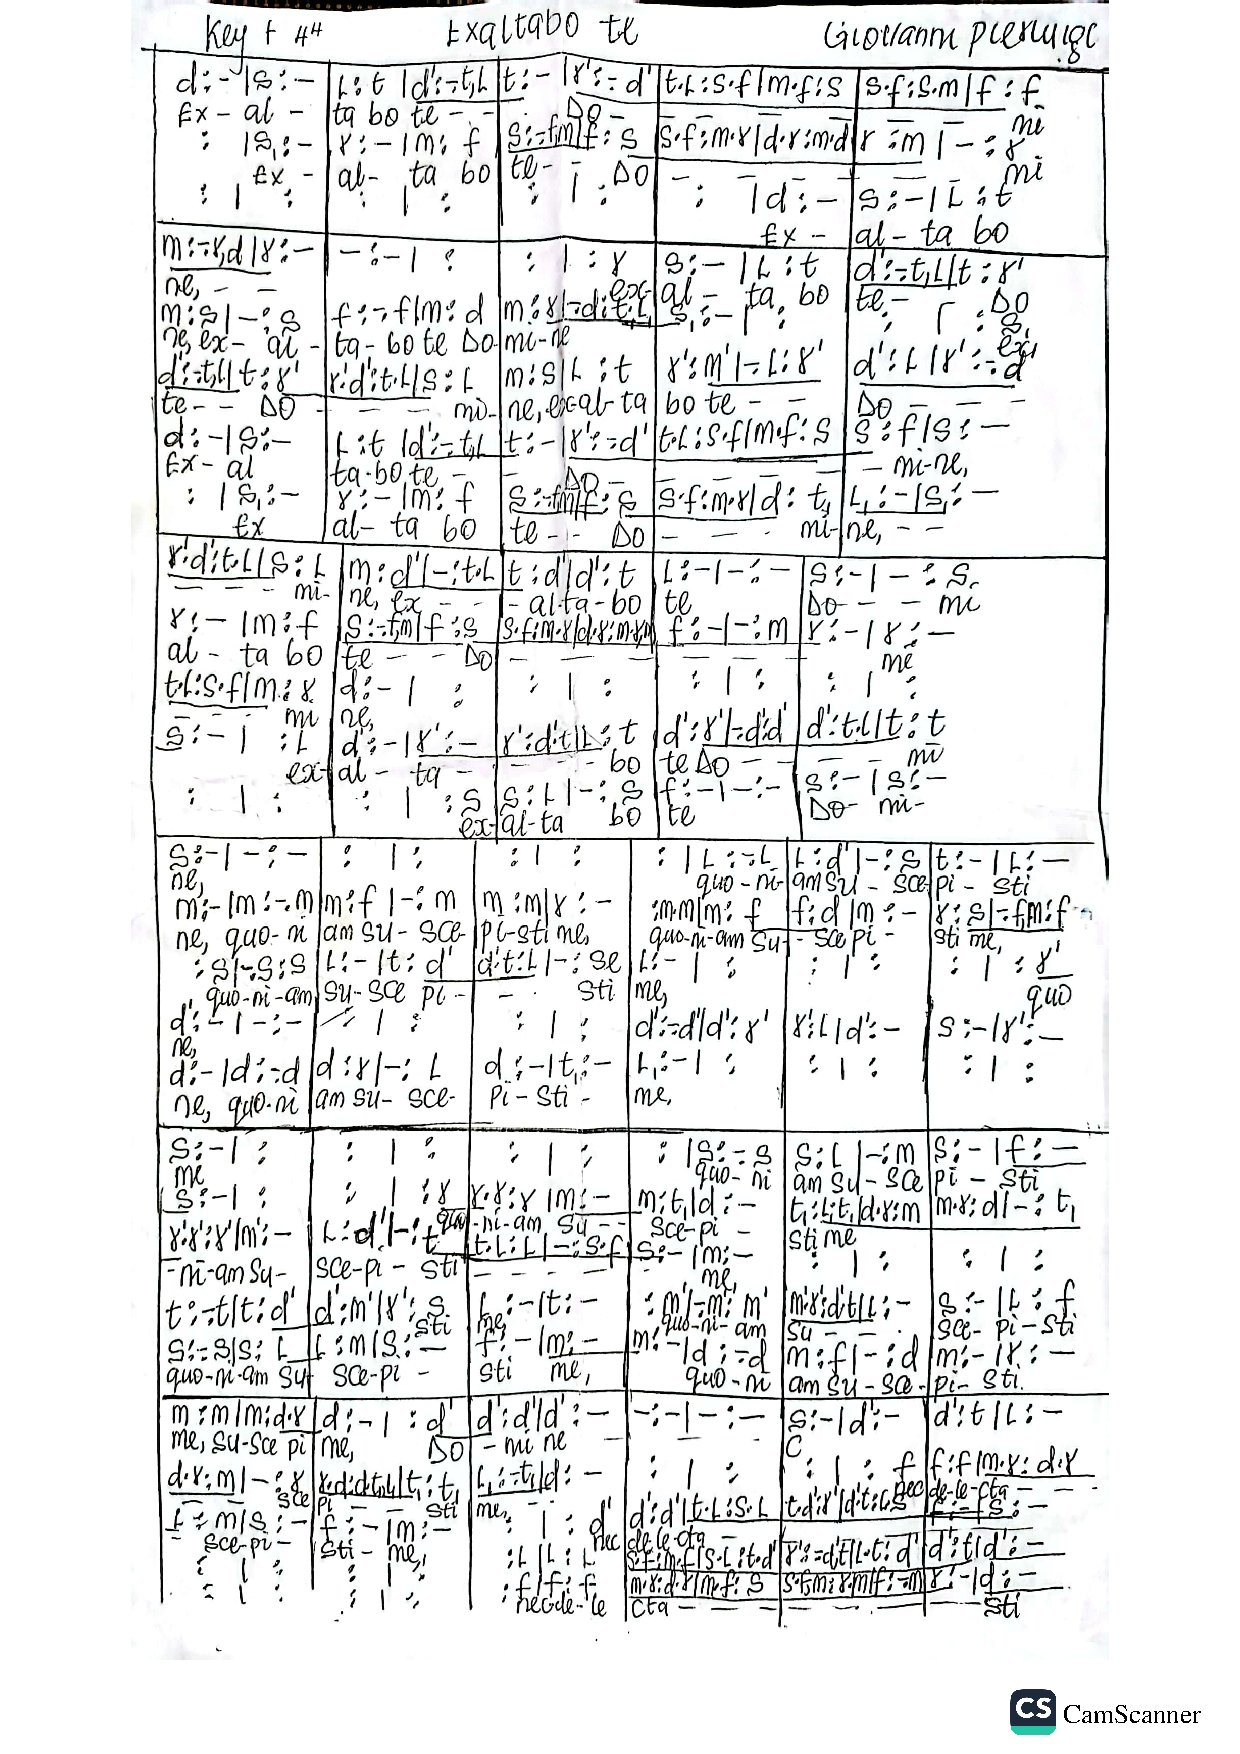 Key F 44 Exaltabo te Giovanni Pierluigi
d:-|s:- | L:t|d':-t,L | t:-|r':-d' | t.L:s.f|m.f:s | s.f:s.m|f:f
Ex- al- ta bo te - - DO mi
: |s,:- | r:-|m:f | s:-fm|f:s | s.f:m.r|d.r:m.d | r:m|-:r
Ex- al- ta bo te- DO mi
: | : | : | : | : | : | -: |d:- | s:-|L:t
Ex- al- ta bo
m:-r,d|r:- | -:-| : | : | :r | s:-|L:t | d':-t,L|t:r'
ne, - - ex- al- ta bo te- DO
m:s|-:s | f:-f|m:d | m:r|-d:t,L, | s,:-| : | : | :s,
ne, ex- al- ta- bo te Do mi-ne ex,
d':-t,L|t:r' | r'.d':t.L|s:L | m:s|L:t | r':m'|-L:r' | d':L|r':-d'
te- - DO - - - mi- ne, ex-al-ta bo te - - DO - - -
d:-|s:- | L:t|d':-t,L | t:-|r':-d' | t.L:s.f|m.f:s | s:f|s:-
Ex- al ta-bo te - DO - mi-ne,
: |s,:- | r:-|m:f | s:-fm|f:s | s.f:m.r|d:t, | L,:-|s,:-
Ex al- ta bo te - - DO - - - mi- ne, - -
r'.d':t.L|s:L | m:d'|-:t.L | t:d'|d':t | L:-|-:- | s:-|-:s
- - - - mi- ne, ex - - - al-ta-bo te DO - - mi
r:-|m:f | s:-fm|f:s | s.f:m.r|d.r:m.r,m | f:-|-:m | r:-|r:-
al- ta bo te - - DO - - - - me
t.L:s.f|m:r | d:-| : | : | : | : | : | : | :
- - - mi ne,
s:-| :L | d':-|r':- | r':d't|L:t | d':r'|-d':d' | d':t.L|t:t
ex- al- ta - - bo te DO - - mi
: | : | : | :s | s:L|-:s | f:-|-:- | s:-|s:-
ex- al-ta bo te DO- mi-
s:-|-:- | : | : | : | : | : |L:-L | L:d'|-:s | t:-|L:-
ne, quo-ni- am su- sce pi- sti
m:-|m:-.m | m:f|-:m | m:m|r:- | :m.m|m:f | f:d|m:- | r:s|-f,m:f
ne, quo-ni am su- sce- pi-sti me, quo-ni-am su- - sce pi- sti me,
:s|-s:s | L:-|t:d' | d't:L|-:se | L:-| : | : | : | : | :r'
quo-ni-am su-sce pi- - - sti me, quo
d':-|-:- | : | : | : | : | d':-d'|d':r' | r':L|d':- | s:-|r':-
ne,
d:-|d:-d | d:r|-:L | d:-|t,:- | L,:-| : | : | : | : | :
ne, quo-ni am su- sce- pi- sti- me,
s:-| : | : | : | : | : | : |s:-s | s:L|-:m | s:-|f:-
me quo-ni am su-sce pi- sti
s:-| : | : | :r | r.r:r|m:- | m:t,|d:- | t,:L,t,|d.r:m | m.r:d|-:t,
quo -ni-am su- - sce-pi- sti me
r'.r':r'|m':- | L:d'|-:t | t.L:L|-:s.f | s:-|m:- | : | : | : | :
-ni-am su- sce-pi- sti - - - - me,
t:-t|t:d' | d':m'|r':s | L:-|t:- | :m'|-m':m' | m'.r':d't|L:- | s:-|L:f
sti me, quo-ni-am su - - - sce-pi-sti
s:-s|s:L | L:m|s:- | f:-|m:- | m:-|d:-d | m:f|-:d | m:-|r:-
quo-ni-am su sce-pi- sti me, quo-ni am su-sce- pi- sti.
m:m|m:d.r | d:-| :d' | d':d'|d':- | -:-|-:- | s:-|d':- | d':t|L:-
me, su-sce pi me, DO - mi ne C
d.r:m|-:r | r.d:d.t,L,|t,:t, | L,:-t,|d:- | : | : | : | :f | f:f|m.r:d.r
- - sce pi - - sti me, nec de-le-cta - -
f:m|s:- | f:-|m:- | : | :d' | d':d'|t.L:s.L | t.d':r'|d't:L.s | f:-fs:-
sce-pi- sti- me, nec de le cta -
: | : | : | : | :L|L:L | s.f:m.f|s.L:t.d' | r':-d't|L.t:d' | d':t|d':-
: | : | : | : | :f|f:f | m.r:d.r|m.f:s | s.f,m:r.m|f:-m | r:-|d:-
nec-de-le cta - - - sti
CS CamScanner